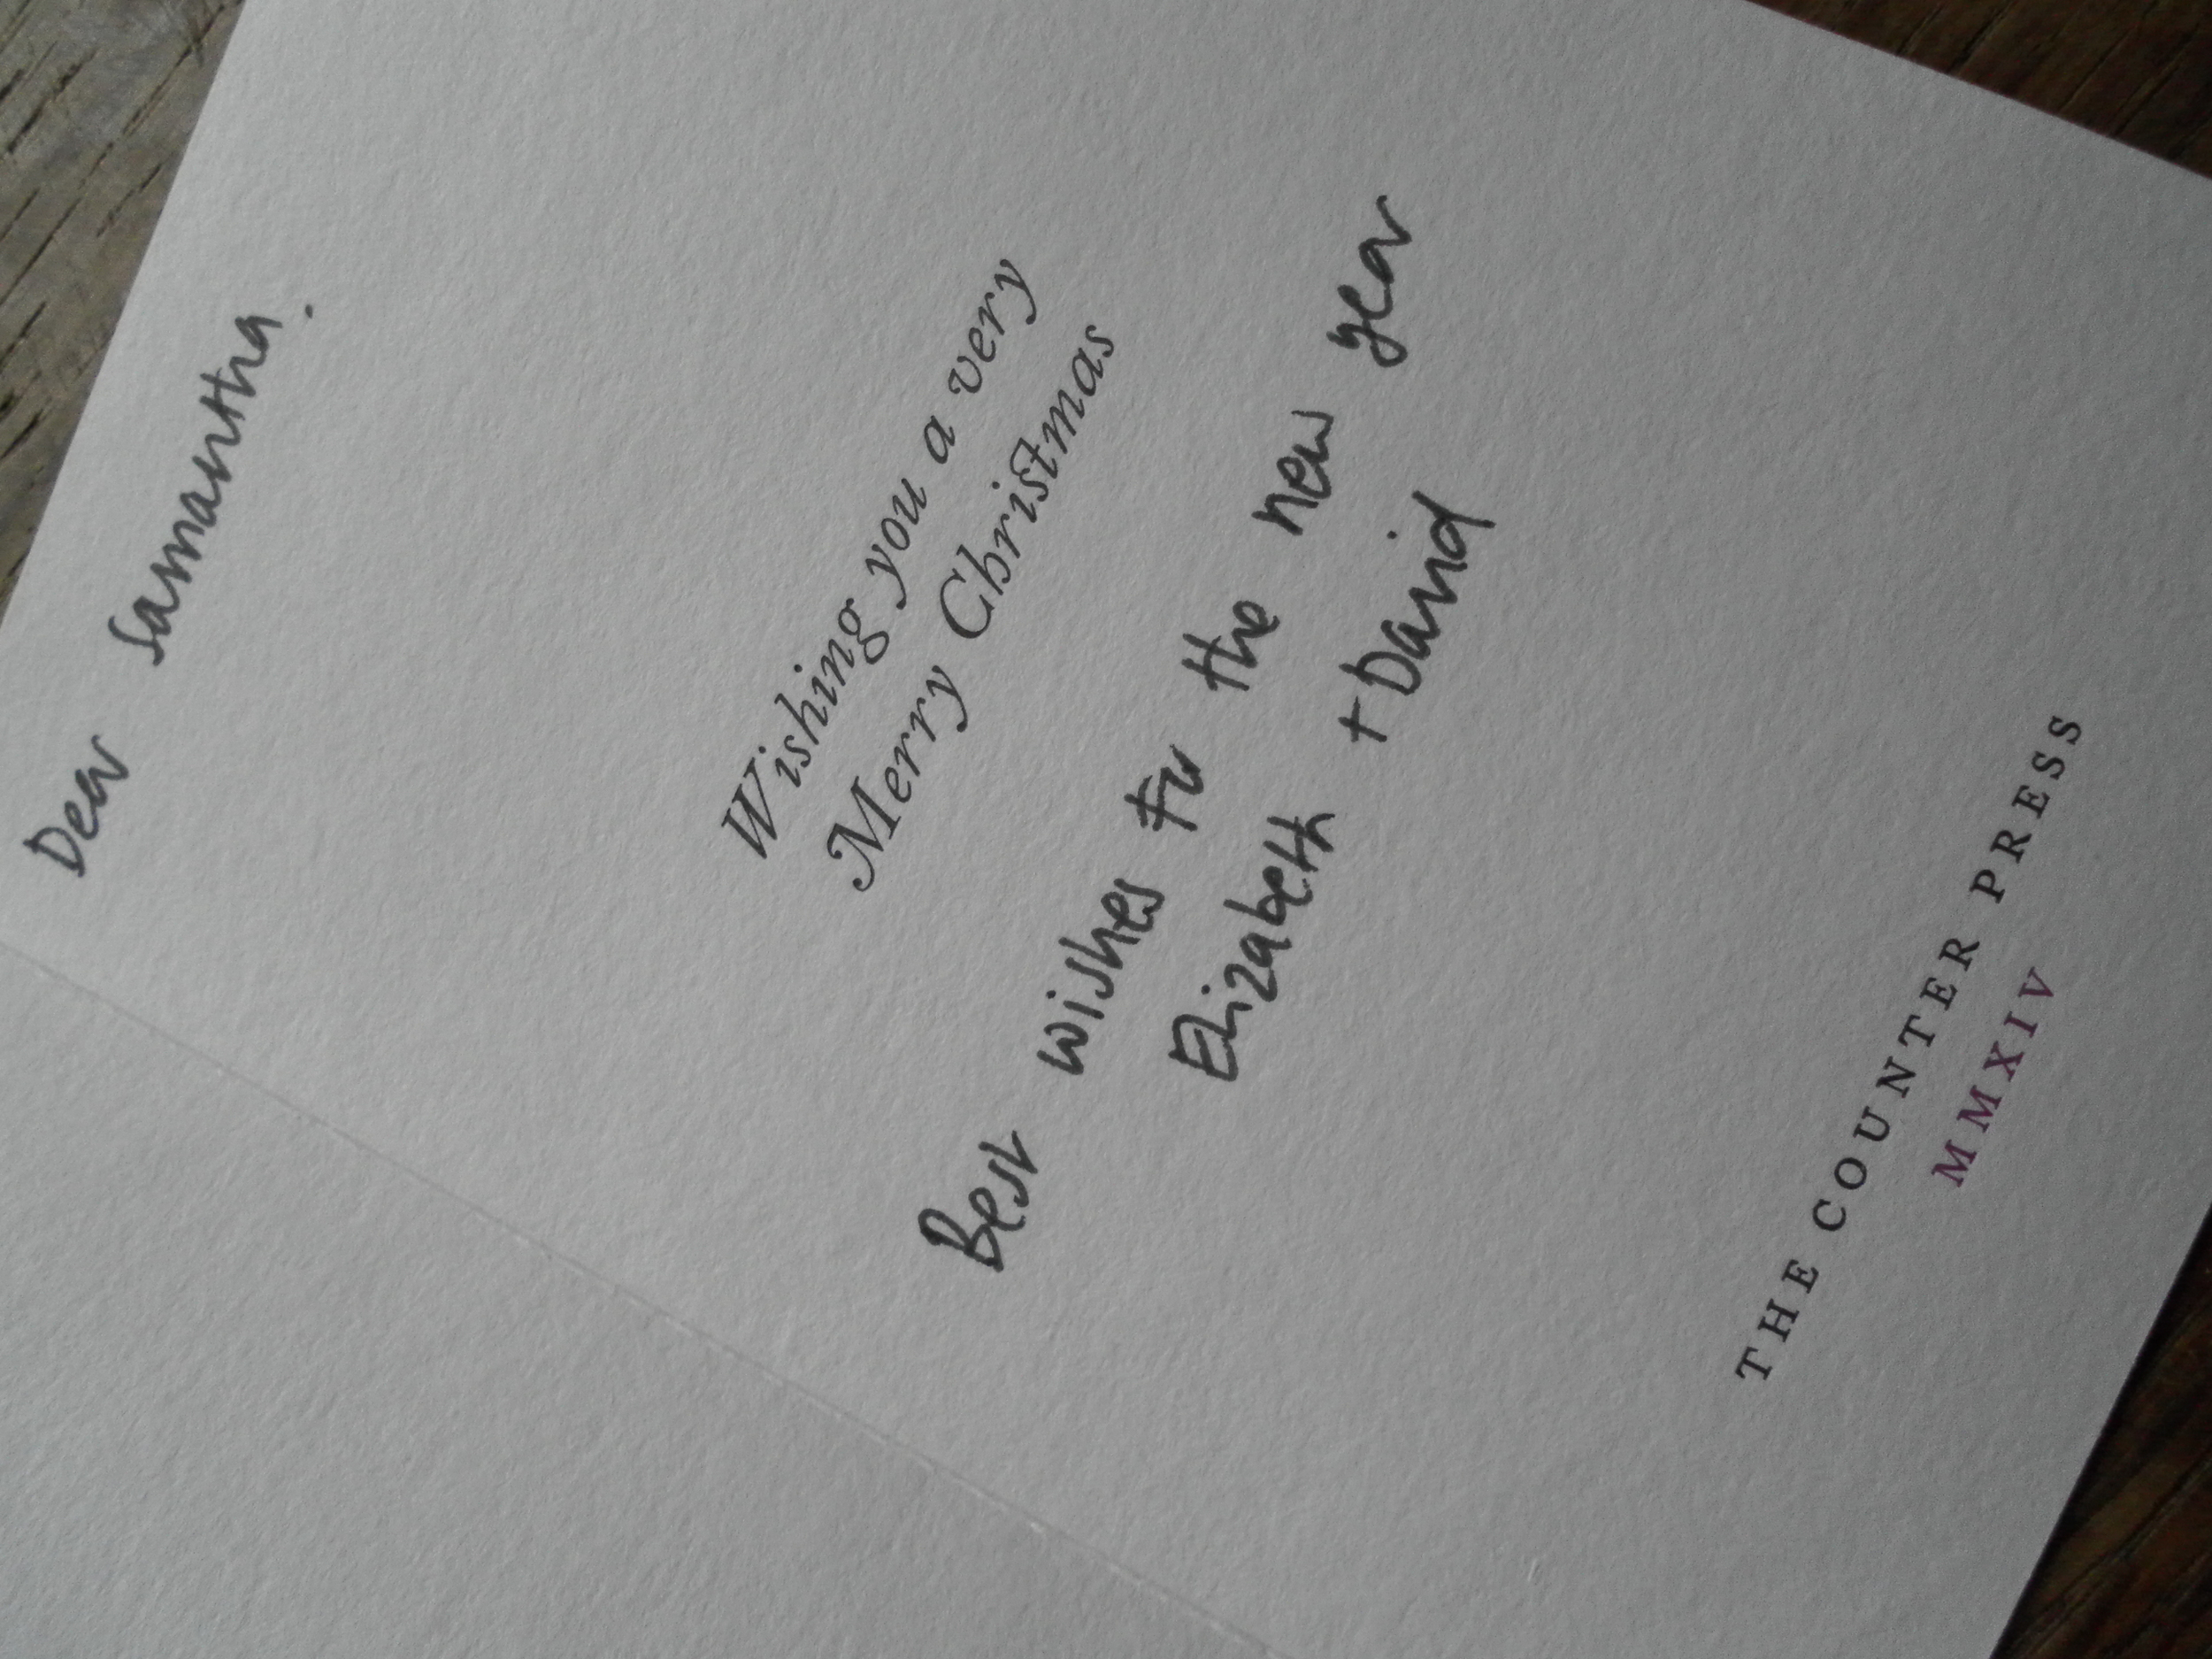 Dear Samantha.
Wishing you a very
Merry Christmas
Best wishes for the new year
Elizabeth + David
THE COUNTER PRESS
MMXIV